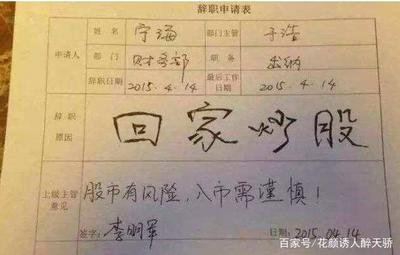 辞职申请表
申请人 姓名 宁海 部门主管 于浩
部门 财务部 职务 出纳
辞职日期 2015.4.14 最后工作日期 2015.4.14
辞职原因 回家炒股
上级主管意见 股市有风险,入市需谨慎!
签字: 李明军 日期: 2015.04.14
百家号/花颜诱人醉天骄